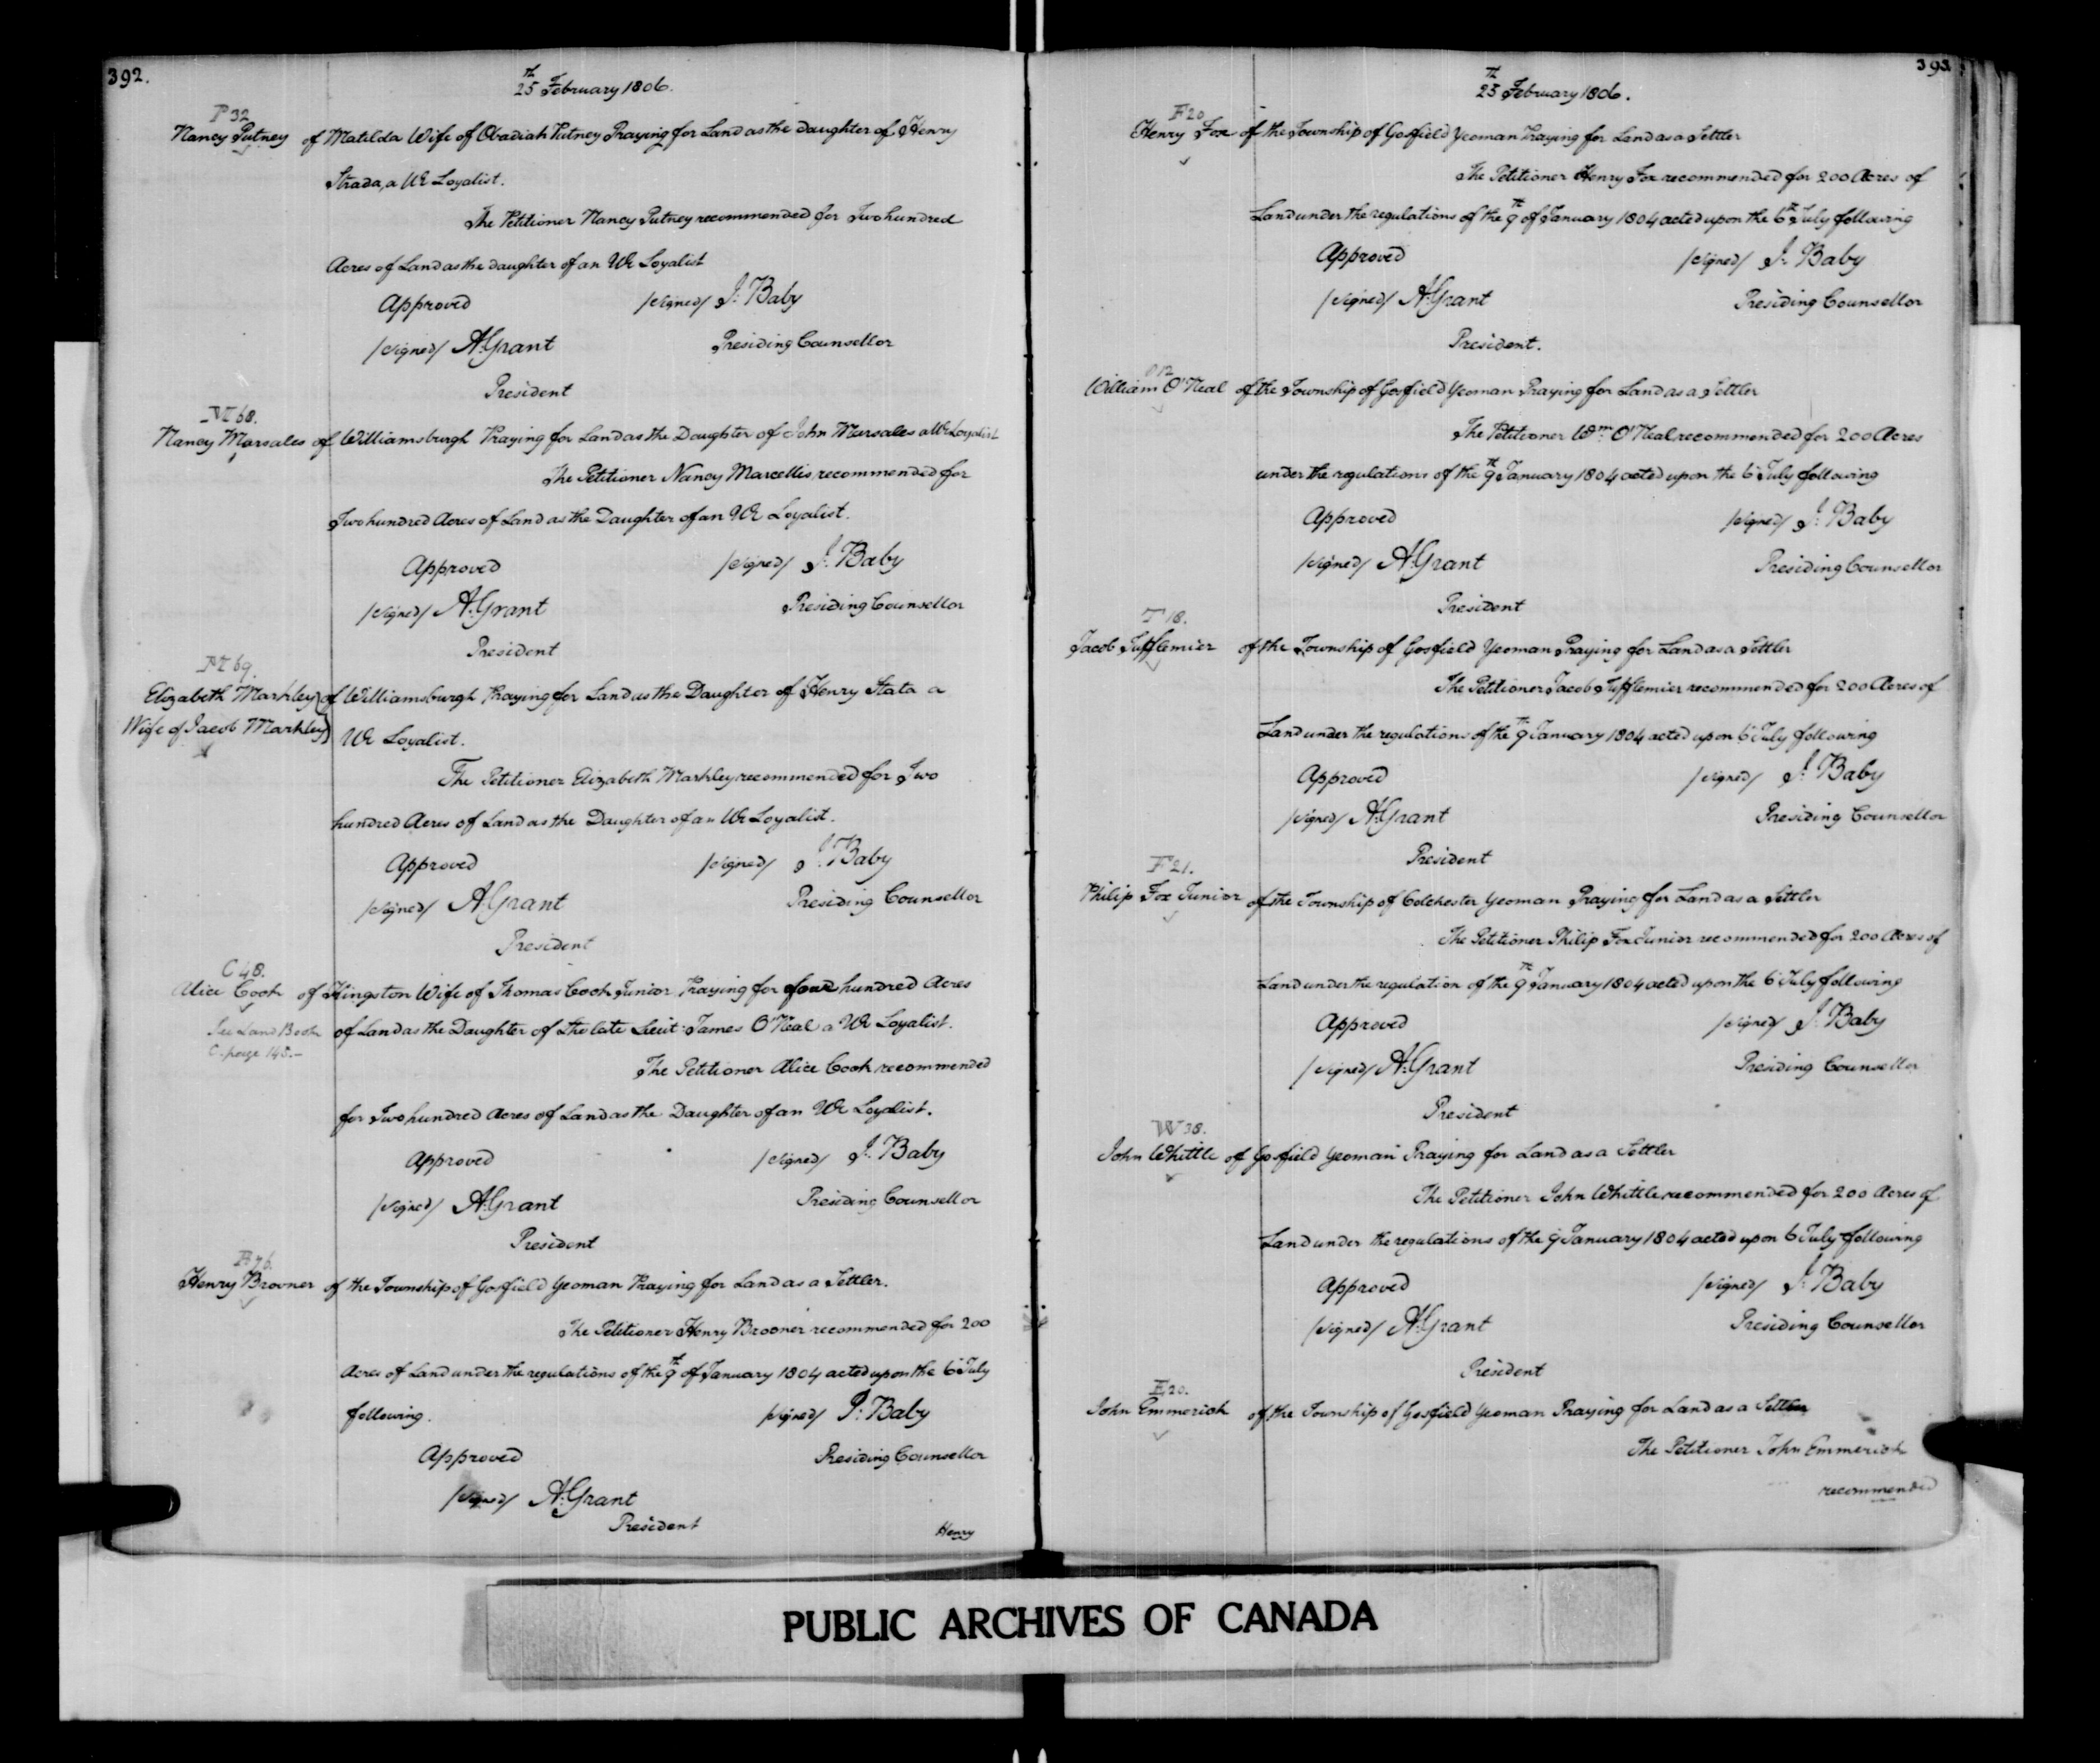 392.
25th February 1806.
P 32
Nancy Putney of Matilda Wife of Obadiah Putney Praying for Land as the daughter of Henry
Strada, a UE Loyalist.
The Petitioner Nancy Putney recommended for Two hundred
Acres of Land as the daughter of an UE Loyalist
Approved /signed/ J. Baby
/signed/ A. Grant Presiding Counsellor
President
M 68.
Nancy Marsales of Williamsburgh Praying for Land as the Daughter of John Marsales a UE Loyalist
The Petitioner Nancy Marcellis recommended for
Two hundred Acres of Land as the Daughter of an UE Loyalist.
Approved /signed/ J. Baby
/signed/ A. Grant Presiding Counsellor
President
M 69.
Elizabeth Markley) of Williamsburgh Praying for Land as the Daughter of Henry Stata a
Wife of Jacob Markley) UE Loyalist.
The Petitioner Elizabeth Markley recommended for Two
hundred Acres of Land as the Daughter of an UE Loyalist.
Approved /signed/ J. Baby
/signed/ A. Grant Presiding Counsellor
President
C 48.
Alice Cook of Kingston Wife of Thomas Cook Junior Praying for four hundred Acres
See Land Book of Land as the Daughter of the late Lieut: James O'Neal a UE Loyalist.
C. page 145.—
The Petitioner Alice Cook recommended
for Two hundred Acres of Land as the Daughter of an UE Loyalist.
Approved /signed/ J. Baby
/signed/ A. Grant Presiding Counsellor
President
B 76.
Henry Brooner of the Township of Gosfield Yeoman Praying for Land as a Settler.
The Petitioner Henry Brooner recommended for 200
Acres of Land under the regulations of the 9th of January 1804 acted upon the 6 July
following. /signed/ J. Baby
Approved Presiding Counsellor
/signed/ A. Grant
President
Henry
393
25th February 1806.
F 20
Henry Fox of the Township of Gosfield Yeoman Praying for Land as a Settler
The Petitioner Henry Fox recommended for 200 Acres of
Land under the regulations of the 9th of January 1804 acted upon the 6th July following
Approved /signed/ J. Baby
/signed/ A. Grant Presiding Counsellor
President.
O 12
William O'Neal of the Township of Gosfield Yeoman Praying for Land as a Settler
The Petitioner Wm. O'Neal recommended for 200 Acres
under the regulations of the 9th January 1804 acted upon the 6 July following
Approved /signed/ J. Baby
/signed/ A. Grant Presiding Counsellor
President
T 18.
Jacob Tufflemier of the Township of Gosfield Yeoman Praying for Land as a Settler
The Petitioner Jacob Tufflemier recommended for 200 Acres of
Land under the regulations of the 9th January 1804 acted upon 6 July following
Approved /signed/ J. Baby
/signed/ A. Grant Presiding Counsellor
President
F 21.
Philip Fox Junior of the Township of Colchester Yeoman Praying for Land as a Settler
The Petitioner Philip Fox Junior recommended for 200 Acres of
Land under the regulation of the 9th January 1804 acted upon the 6 July following
Approved /signed/ J. Baby
/signed/ A. Grant Presiding Counsellor
President
W 38.
John Whittle of Gosfield Yeoman Praying for Land as a Settler
The Petitioner John Whittle recommended for 200 Acres of
Land under the regulations of the 9 January 1804 acted upon 6 July following
Approved /signed/ J. Baby
/signed/ A. Grant Presiding Counsellor
President
E 20.
John Emmerich of the Township of Gosfield Yeoman Praying for Land as a Settler
The Petitioner John Emmerich
recommended
PUBLIC ARCHIVES OF CANADA